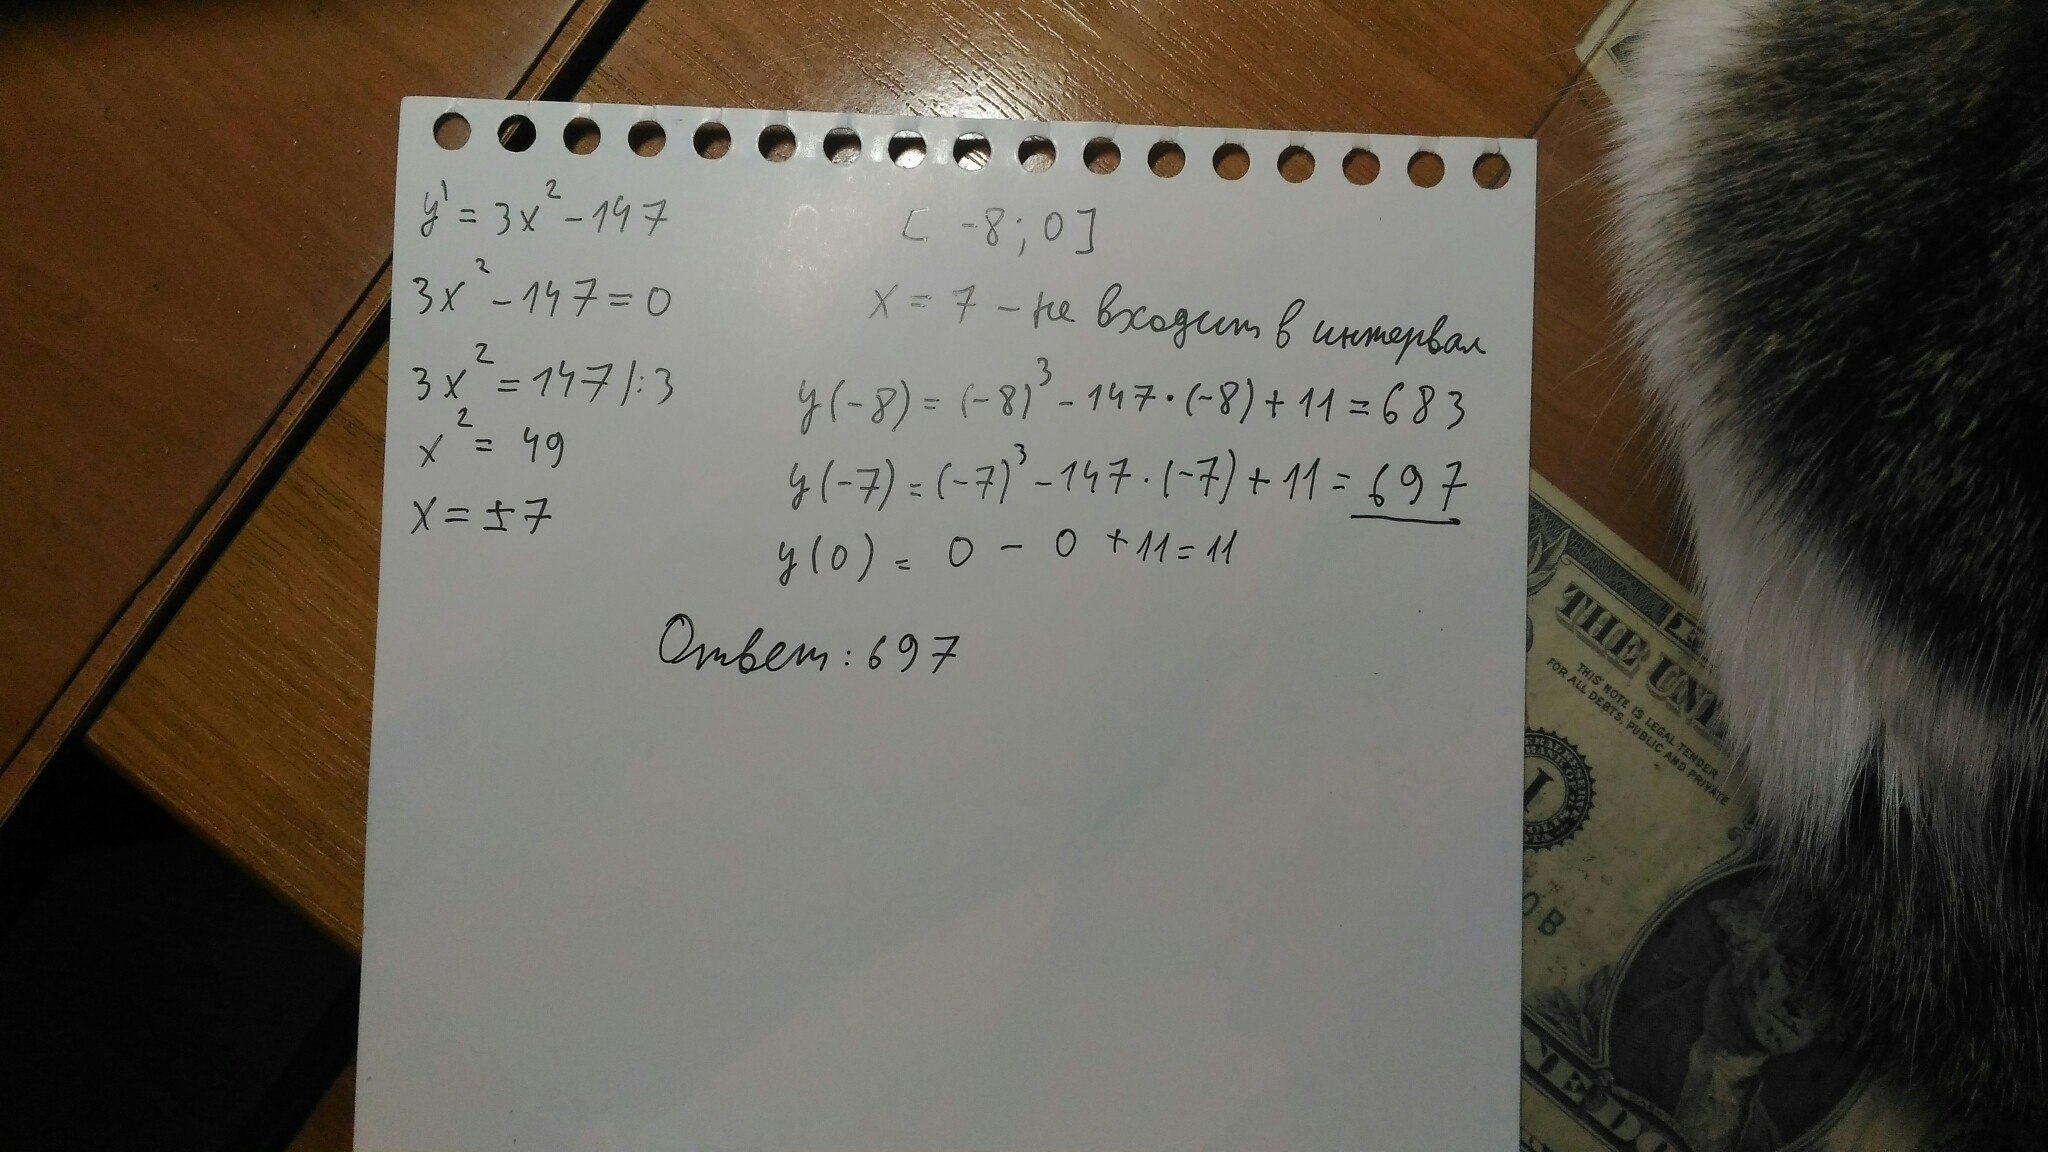 y' = 3x² - 147
3x² - 147 = 0
3x² = 147 /:3
x² = 49
x = ±7
[ -8 ; 0 ]
x = 7 - не входит в интервал
y(-8) = (-8)³ - 147 · (-8) + 11 = 683
y(-7) = (-7)³ - 147 · (-7) + 11 = 697
y(0) = 0 - 0 + 11 = 11
Ответ: 697
THE UNI
THIS NOTE IS LEGAL TENDER
FOR ALL DEBTS, PUBLIC AND PRIVATE
1
0 B
NE DO